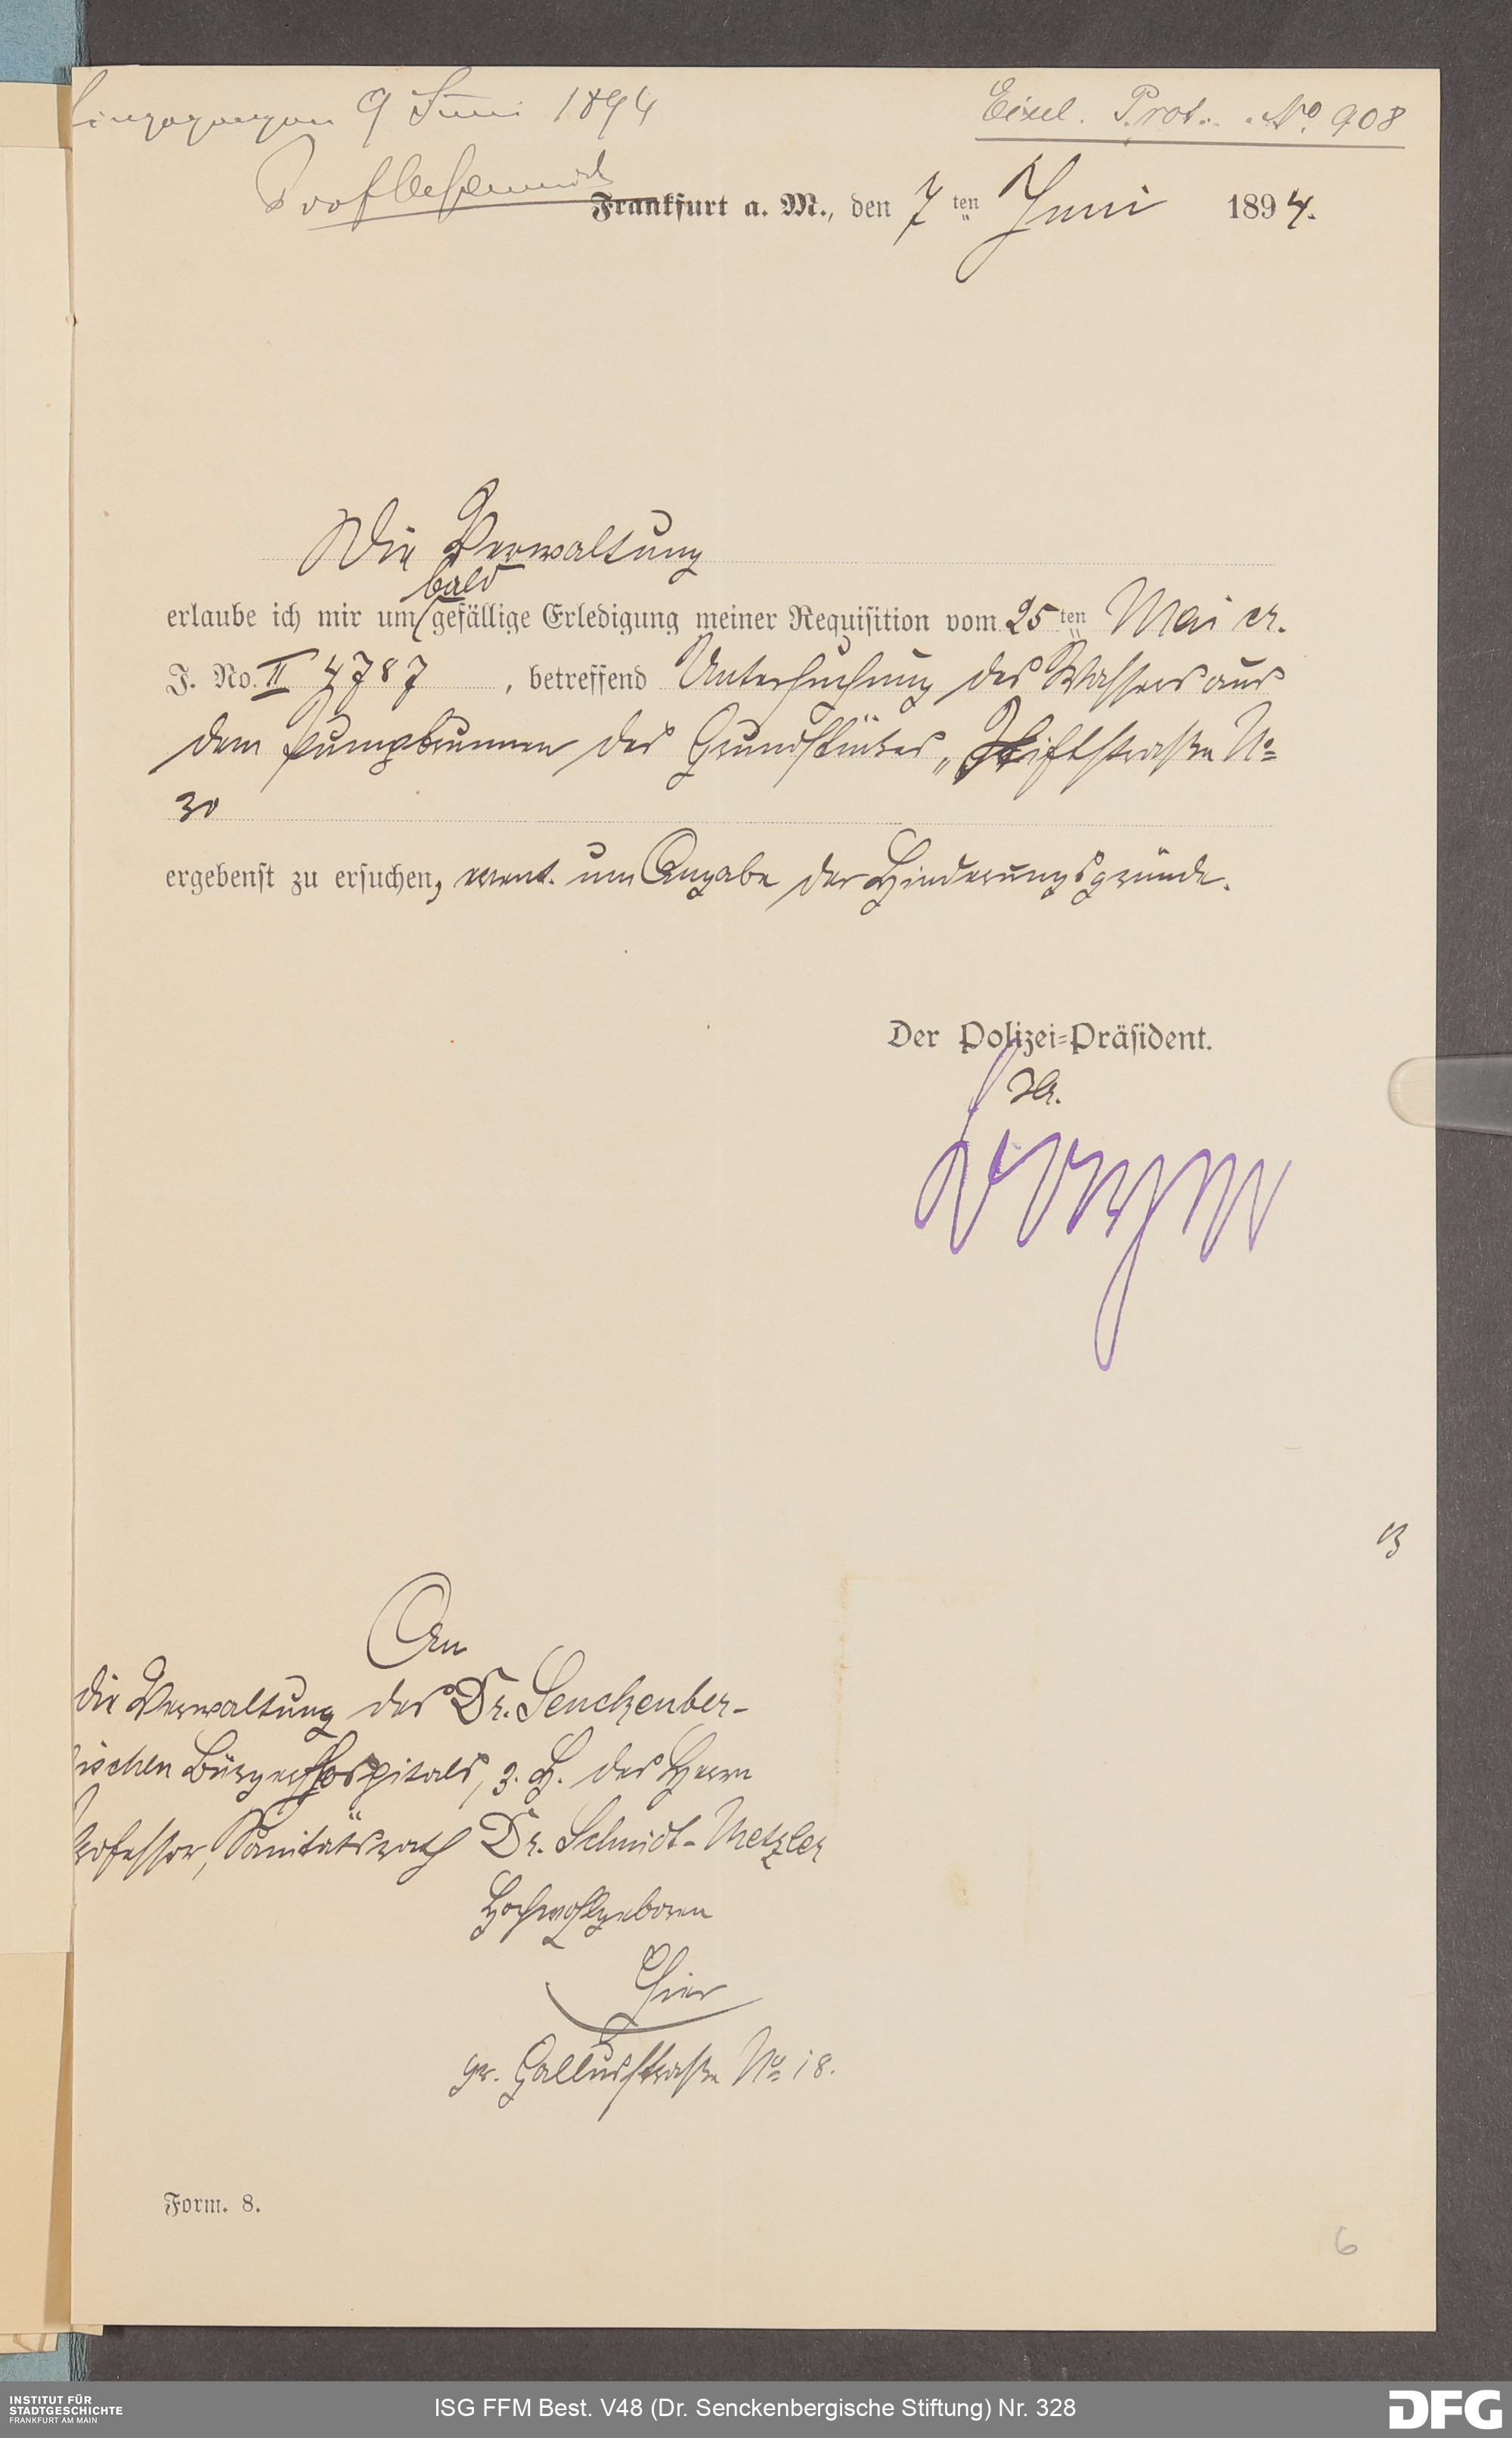 Eingegangen 9 Juni 1894
Eiscl. Prot. No. 908
Frankfurt a. M., den 7ten Juni 1894.
Die Verwaltung
bald
erlaube ich mir um gefällige Erledigung meiner Requisition vom 25ten Mai cr.
J. No. II 4787, betreffend Untersuchung des Wassers aus
dem Pumpbrunnen des Grundstückes „Stiftstraße No
30
ergebenst zu ersuchen, event. um Angabe der Hinderungsgründe.
Der Polizei=Präsident.
IA.
An
die Verwaltung des Dr. Senckenber-
ischen Bürgerhospitals, z. H. des Herrn
Professor, Sanitätsrath Dr. Schmidt-Metzler
Hochwohlgeboren
Hier
gr. Gallusstraße No 18.
Form. 8.
6
INSTITUT FÜR
STADTGESCHICHTE
FRANKFURT AM MAIN
ISG FFM Best. V48 (Dr. Senckenbergische Stiftung) Nr. 328
DFG